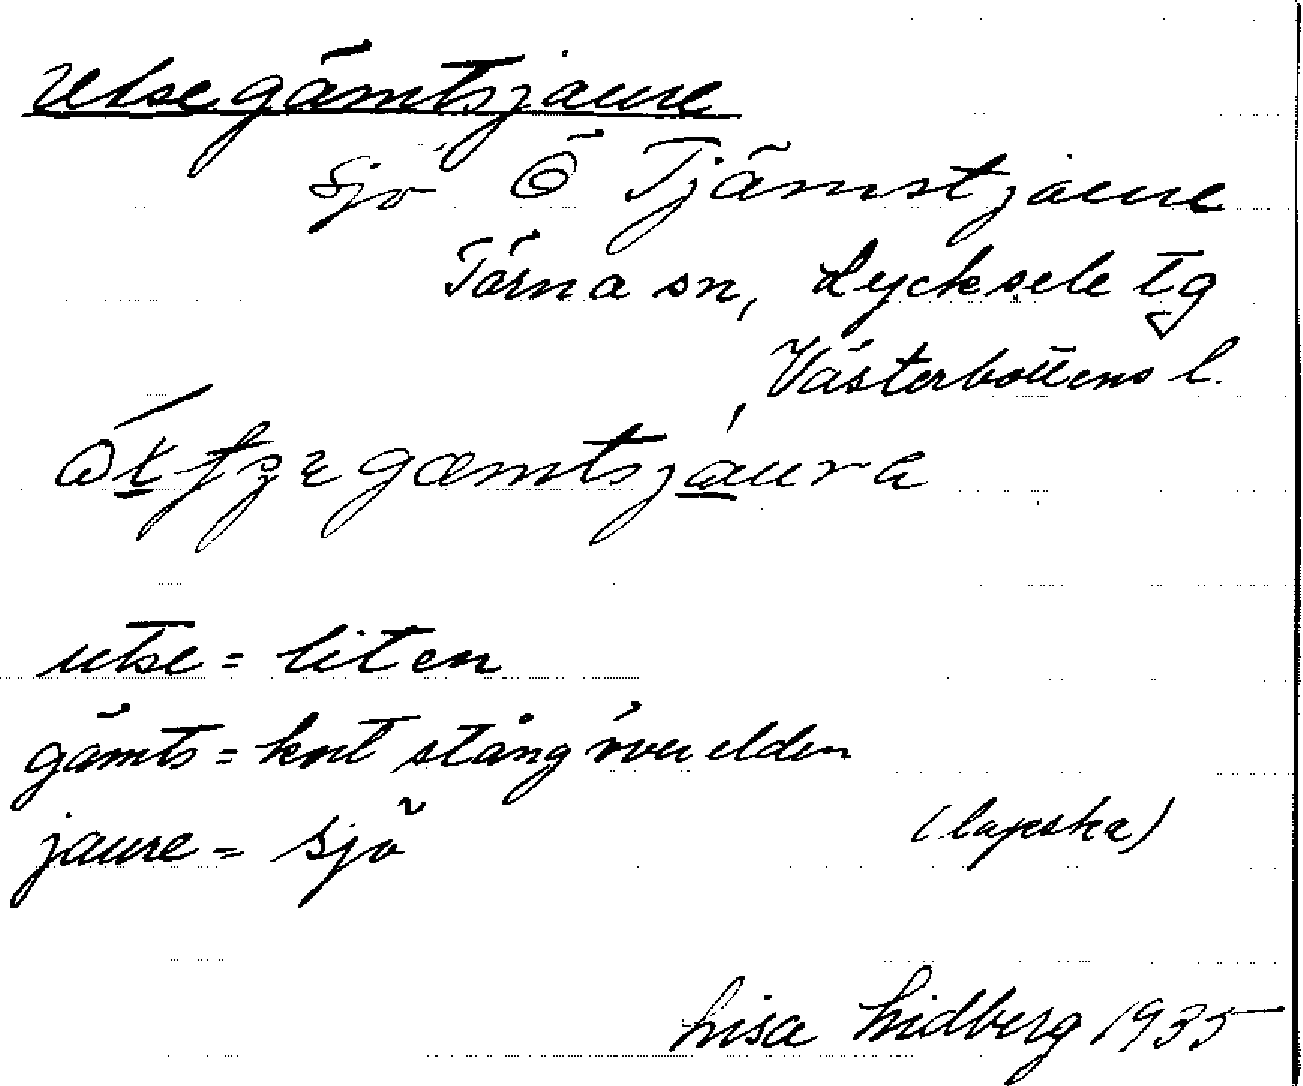 Utsegämtsjaure
Sjö Ö Tjämstjaure
Tärna sn, Lycksele tg
Västerbottens l.
gæmtsjaura
utse = liten
gämts = kort stång över elden
jaure = sjö
(lapska)
Lisa Lidberg 1935